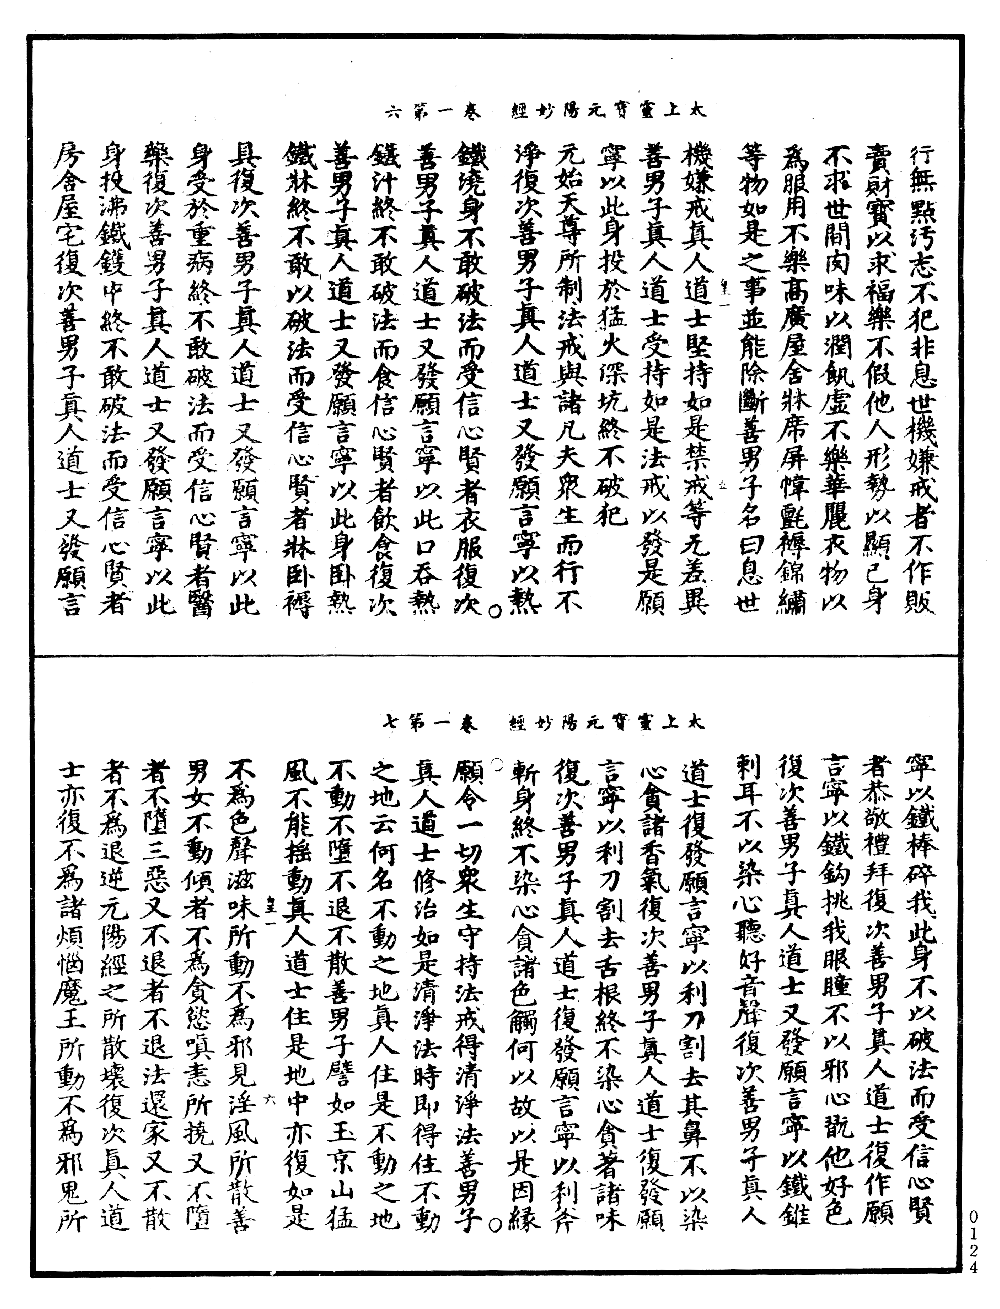 太上靈寶元陽妙經　卷一第六
行無點污志不犯非息世機嫌戒者不作販
賣財寶以求福樂不假他人形勢以顯己身
不求世間肉味以潤飢虛不樂華麗衣物以
為服用不樂高廣屋舍牀席屏幛氈褥錦繡
等物如是之事並能除斷善男子名曰息世
機嫌戒真人道士堅持如是禁戒等无差異
善男子真人道士受持如是法戒以發是願
寧以此身投於猛火深坑終不破犯
元始天尊所制法戒與諸凡夫眾生而行不
淨復次善男子真人道士又發願言寧以熱
鐵燒身不敢破法而受信心賢者衣服復次
善男子真人道士又發願言寧以此口吞熱
鐵汁終不敢破法而食信心賢者飲食復次
善男子真人道士又發願言寧以此身臥熱
鐵牀終不敢以破法而受信心賢者牀臥褥
具復次善男子真人道士又發願言寧以此
身受於重病終不敢破法而受信心賢者醫
藥復次善男子真人道士又發願言寧以此
身投沸鐵鑊中終不敢破法而受信心賢者
房舍屋宅復次善男子真人道士又發願言
太上靈寶元陽妙經　卷一第七
寧以鐵棒碎我此身不以破法而受信心賢
者恭敬禮拜復次善男子真人道士復作願
言寧以鐵鈎挑我眼瞳不以邪心翫他好色
復次善男子真人道士又發願言寧以鐵錐
刺耳不以染心聽好音聲復次善男子真人
道士復發願言寧以利刀割去其鼻不以染
心貪諸香氣復次善男子真人道士復發願
言寧以利刀割去舌根終不染心貪著諸味
復次善男子真人道士復發願言寧以利斧
斬身終不染心貪諸色觸何以故以是因緣
願令一切眾生守持法戒得清淨法善男子
真人道士修治如是清淨法時即得住不動
之地云何名不動之地真人住是不動之地
不動不墮不退不散善男子譬如玉京山猛
風不能搖動真人道士住是地中亦復如是
不為色聲滋味所動不為邪見淫風所散善
男女不動傾者不為貪慾嗔恚所撓又不墮
者不墮三惡又不退者不退法還家又不散
者不為退逆元陽經之所散壞復次真人道
士亦復不為諸煩惱魔王所動不為邪鬼所
0124